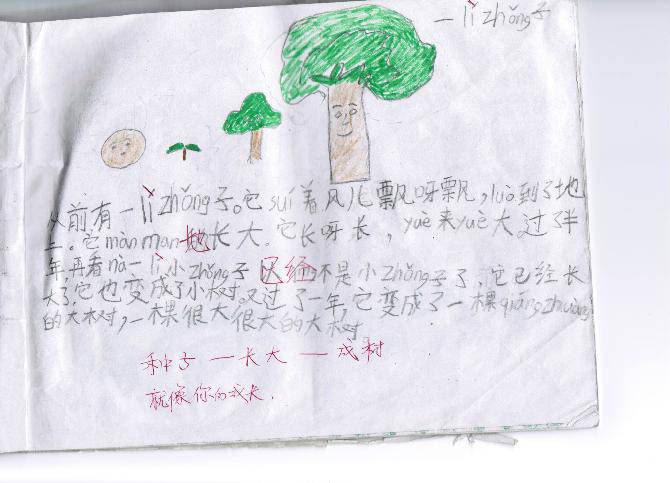 一lìzhǒng子
从前有一lìzhǒng子。它suí着风儿飘呀飘，luò到了地
上。它mànman地长大。它长呀长，yuè来yuè大。过了半
年再看nà一lì小zhǒng子已经不是小zhǒng子了，它已经长
大了它也变成了小树。又过了一年，它变成了一棵qiángzhuàng
的大树，一棵很大很大的大树
种子——长大——成树
就像你的成长.